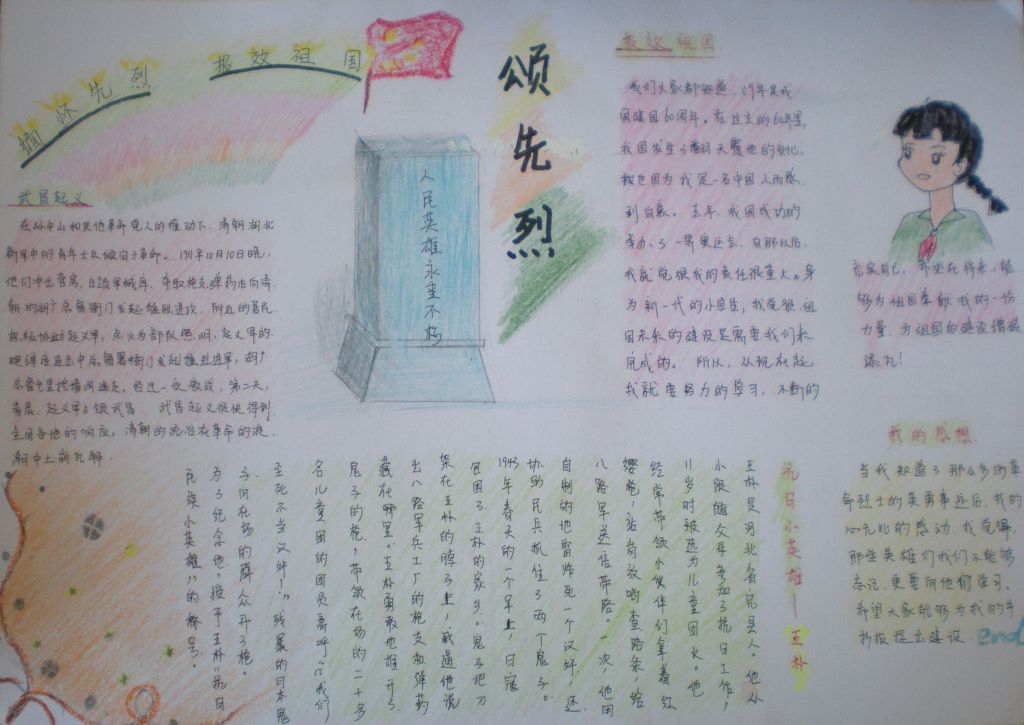 缅怀先烈 报效祖国
颂先烈
人民英雄永垂不朽
武昌起义
在孙中山和其他革命党人的推动下,清朝湖北
新军中的青年士兵倾向于革命。1911年10月10日晚,
他们冲出营房,占领军械库,夺取枪支弹药后向清
朝的湖广总督衙门发起猛烈进攻,附近的居民
积极协助起义军,点火为部队照明,起义军的
炮弹连连击中总督署衙门发起猛烈进军,湖广
总督也是挖墙洞逃走。经过一夜激战,第二天,
清晨,起义军占领武昌。武昌起义很快得到
全国各地的响应,清朝的统治在革命的浪
潮中土崩瓦解。
报效祖国
我们大家都知道,09年是我
国建国60周年。在过去的60年里,
我国发生了翻天覆地的变化,
我也因为我是一名中国人而感
到自豪。去年,我国成功的
举办了一界奥运会。自那以后,
我就觉得我的责任很重大。身
为新一代的小学生,我觉得祖
国未来的建设是需要我们来
完成的。所以,从现在起
我就要努力的学习,不断的
充实自己,希望在将来,能
够为祖国奉献我的一份
力量,为祖国的建设增砖
添瓦!
我的感想.
当我知道了那么多的革
命烈士的英勇事迹后,我的
心无比的感动,我觉得,
那些英雄们我们不能够
忘记,更要向他们学习。
希望大家能够为我的手
抄报提出建议.end
抗日小英雄—王朴
王朴是河北省完县人。他从
小跟随父母参加了抗日工作,
11岁时被选为儿童团长。他
经常带领小伙伴们拿着红
缨枪,站岗放哨查路条,给
八路军送信带路。一次,他用
自制的地雷炸死一个汉奸,还
协助民兵抓住了两个鬼子。
1943年春天的一个早上,日寇
包围了王朴的家乡。鬼子把刀
架在王朴的脖子上,威逼他说
出八路军兵工厂的枪支和弹药
藏在哪里。王朴勇敢地推开了
鬼子的枪,带领在场的二十多
名儿童团的团员高呼:“我们
至死不当汉奸!”残暴的日本鬼
子向在场的群众开了枪。
为了纪念他,授予王朴“抗日
民族小英雄”的称号。